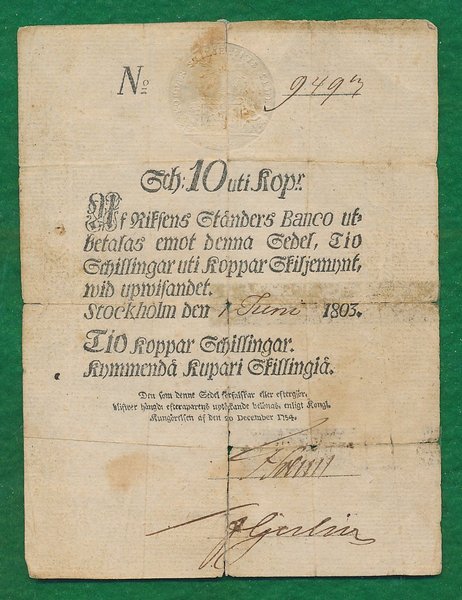 No
949
Sch: 10 uti Kopr.
Af Riksens Ständers Banco ut-
betalas emot denna Sedel, Tio
Schillingar uti Koppar Skiljemynt,
wid upwisandet.
Stockholm den 1 Juni 1803.
Tio Koppar Schillingar.
Kymmendä Kupari Skillingiä.
Den som denne Sedel förfalskar eller eftergör,
blifwer hängd; efteraparens uptäckande belönas, enligt Kongl.
Kungörelsen af den 20 December 1754.